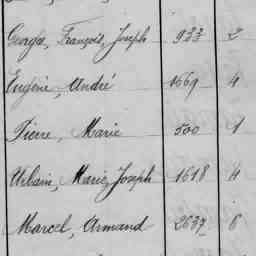 Georges, François, Joseph 933 2
Eugène, André 1669 4
Pierre, Marie 500 1
Urbain, Marie, Joseph 1618 4
Marcel, Armand 2637 8